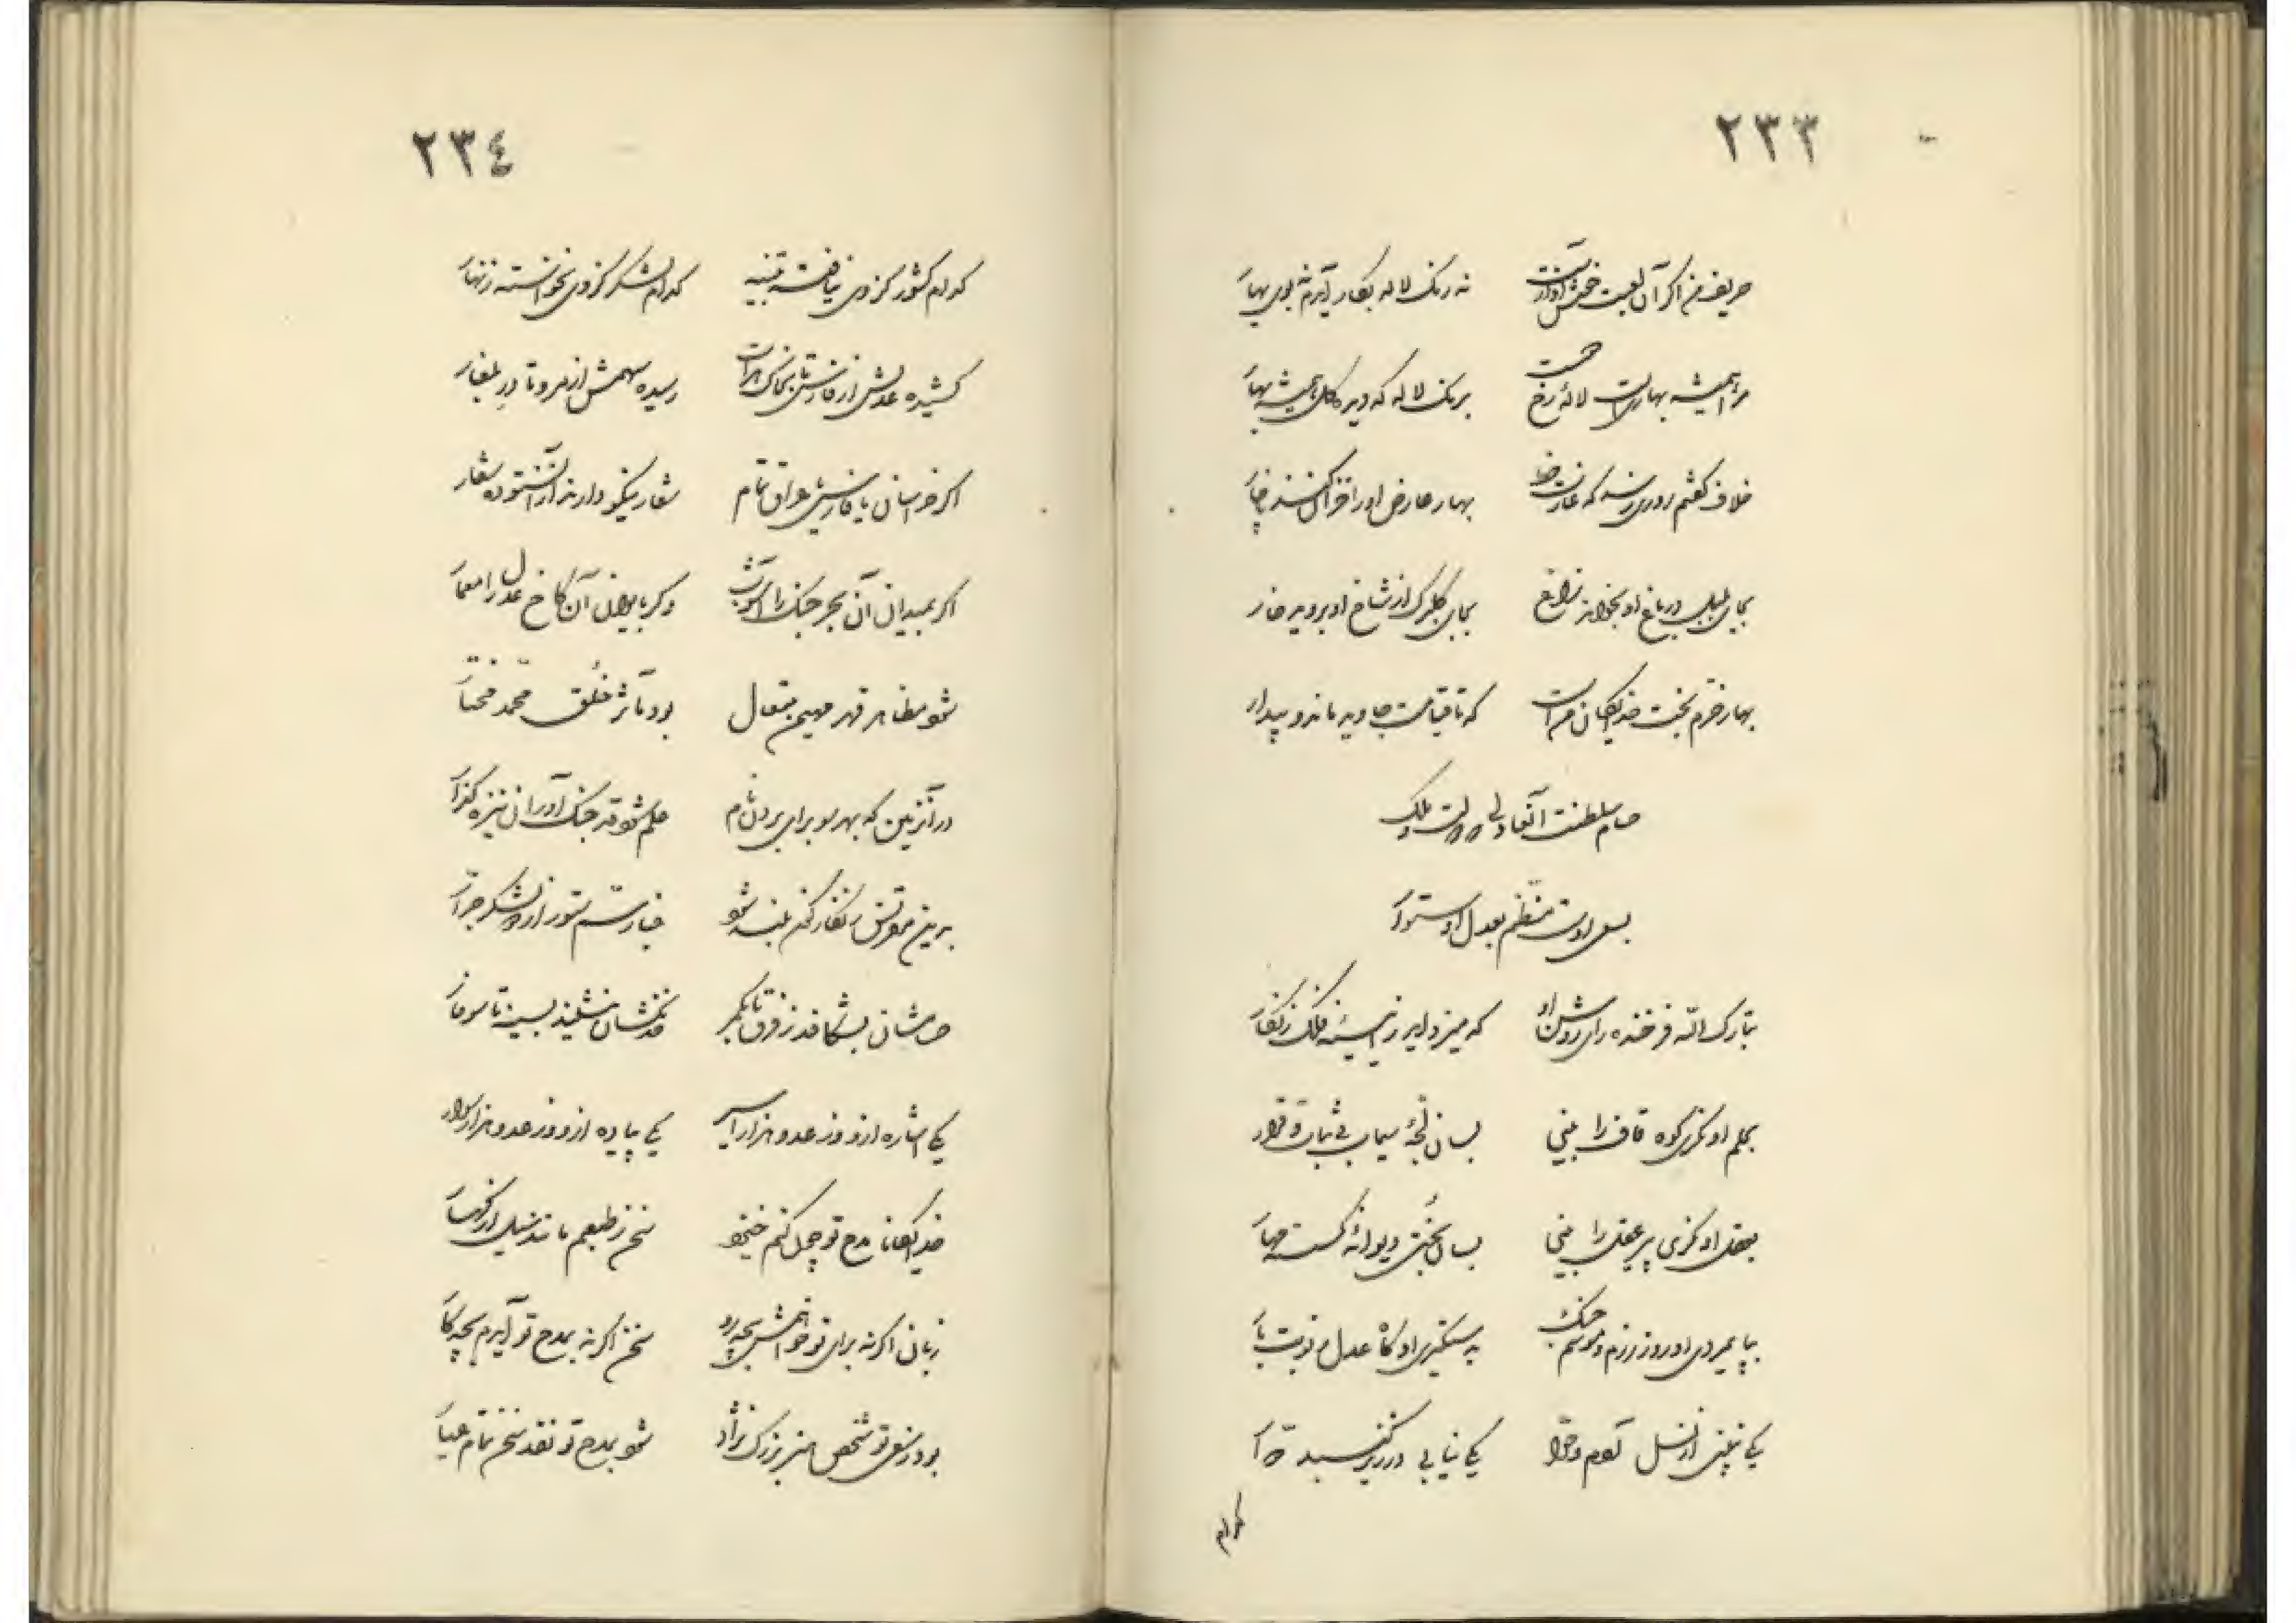 ٢٣٣
حریف من اگر آن لعبت خوش آوازست نه رنگ لاله بکار آیدم نه بوی بهار
مرا همیشه بهارست لاله رخ جفت برنگ لاله که دید گل همیشه بهار
خلاف گفتم روزی رسد که عارضها بهار عارض او را خزان کند ناچار
بجای بلبل در باغ او بخواند زاغ بجای گلبرگ از شاخ او بروید خار
بهار خرم بخت خدایگان منست که تا قیامت جاوید ماند و بیدار
حسام سلطنت آنفاد دولت و ملک
بسعی اوست منظم بعدل او ستوار
تبارک الله فرخنده رای روشن او که میزداید ز آئینه فلک زنگار
بحلم او نگری کوه قاف را بینی بسان لجهٔ سیماب بی ثبات و قرار
بعقل او نگری پیر عقل را بینی بسان بختی دیوانهٔ گسسته مهار
بپایمردی او روز رزم و موسم جنگ بدستگیری او گاه عدل و نوبت بار
یکی نبینی از نسل آدم و حوا یکی نیابی در زیر گنبد دوار
کدام
٢٣٤
کدام کشور کز وی نیافته تنبیه کدام لشکر کز وی نخواسته زنهار
کشیده عدلش از فارس تا بخاک هرات رسیده سهمش از مرو تا در بلغار
اگر خراسان یا فارس یا عراق تمام شعار نیکو دارند از آن ستوده شعار
اگر بمیدان آن بحر جنگ را آشوب وگر بایوان آن کاخ عدل را معمار
شود مظاهر قهر مهیمن متعال بود مآثر خلق محمد مختار
در آنزمین که بهر سو برای بردن نام علم شود قد جنگ آوران نیزه گذار
بدین مقرنس زنگارگون بلند شود غبار سم ستور از دو لشکر جرار
حسامشان بشکافد ز فرق تا بکمر خدنگشان بنشیند بسینه تا سوفار
یکی اشاره ازو وز عدو هزار اسیر یکی پیاده ازو وز عدو هزار سوار
خدایگانا مدح تو چون کنم خیزد سخن ز طبعم مانند سیل از کهسار
زبان اگر نه برای تو خواهمش بچه رو سخن اگر نه بمدح تو آیدم بچه کار
بود ز سعی تو شخص هنر بزرگ نژاد شود بمدح تو نقد سخن تمام عیار